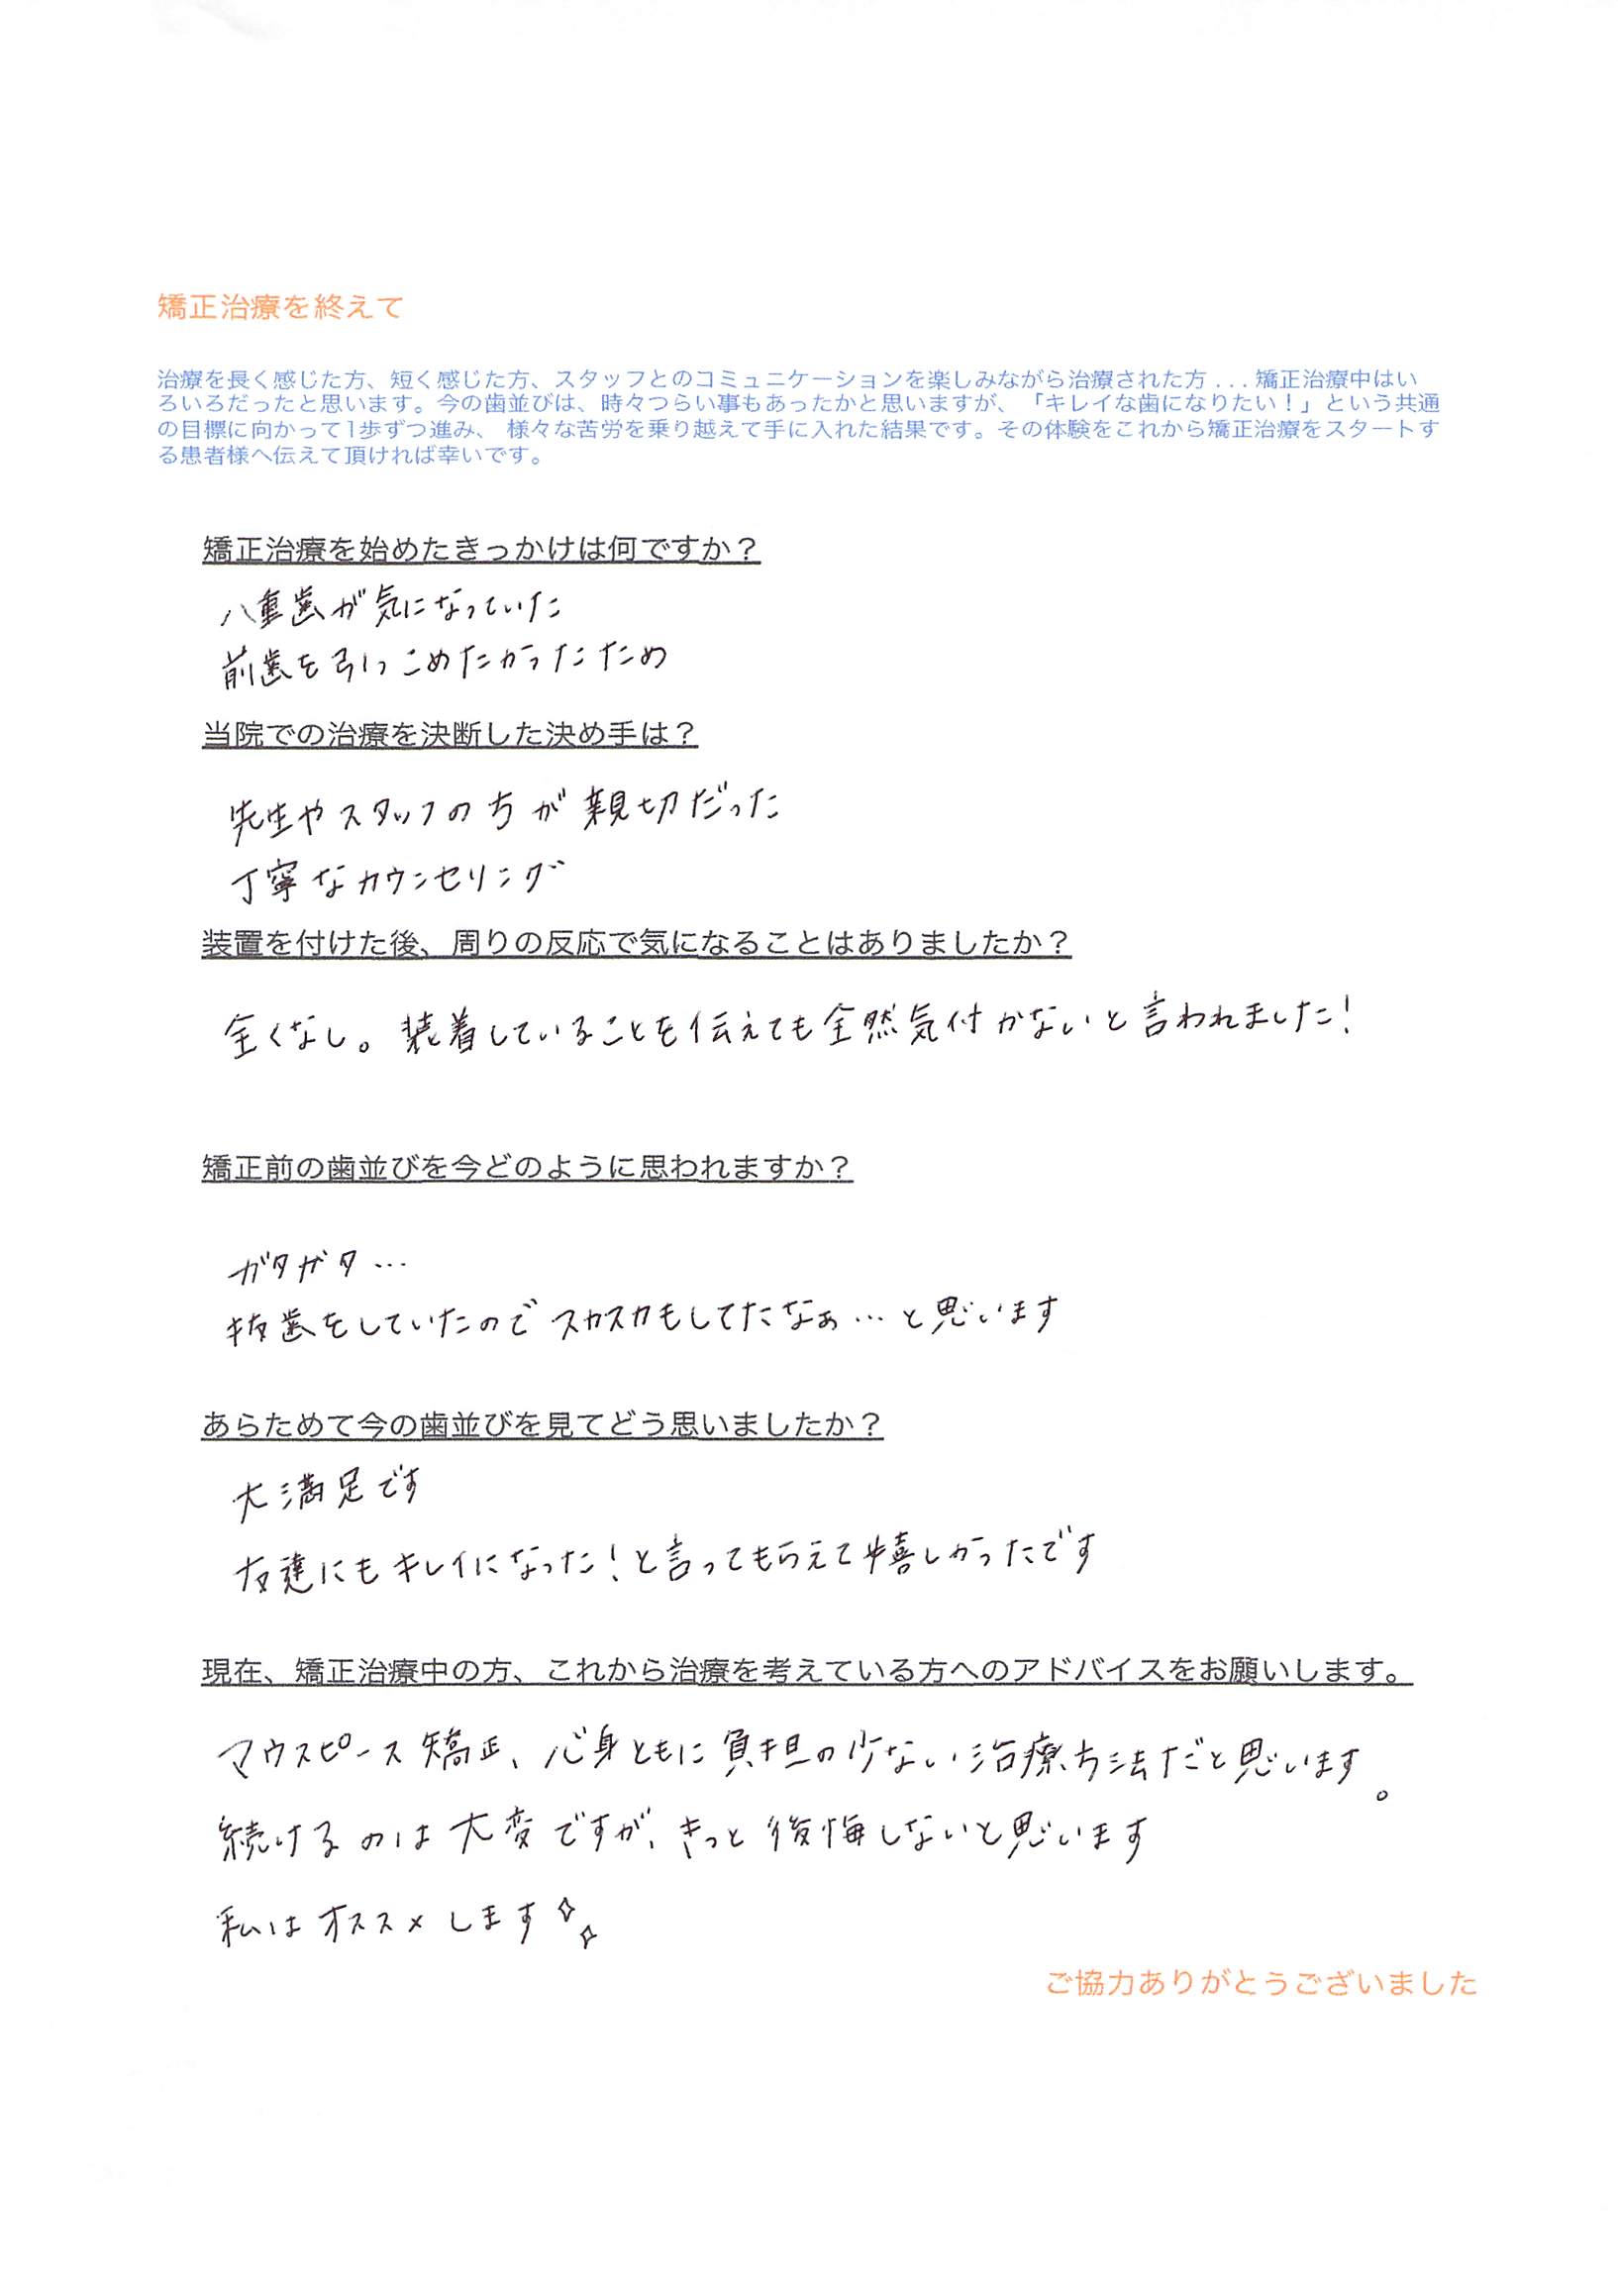 矯正治療を終えて
治療を長く感じた方、短く感じた方、スタッフとのコミュニケーションを楽しみながら治療された方...矯正治療中はい
ろいろだったと思います。今の歯並びは、時々つらい事もあったかと思いますが、「キレイな歯になりたい！」という共通
の目標に向かって1歩ずつ進み、 様々な苦労を乗り越えて手に入れた結果です。その体験をこれから矯正治療をスタートす
る患者様へ伝えて頂ければ幸いです。
矯正治療を始めたきっかけは何ですか？
八重歯が気になっていた
前歯を引っこめたかったため
当院での治療を決断した決め手は？
先生やスタッフの方が親切だった
丁寧なカウンセリング
装置を付けた後、周りの反応で気になることはありましたか？
全くなし。装着していることを伝えても全然気付かないと言われました！
矯正前の歯並びを今どのように思われますか？
ガタガタ…
抜歯をしていたのでスカスカもしてたなぁ…と思います
あらためて今の歯並びを見てどう思いましたか？
大満足です
友達にもキレイになった！と言ってもらえて嬉しかったです
現在、矯正治療中の方、これから治療を考えている方へのアドバイスをお願いします。
マウスピース矯正、心身ともに負担の少ない治療方法だと思います。
続けるのは大変ですが、きっと後悔しないと思います
私はオススメします
ご協力ありがとうございました